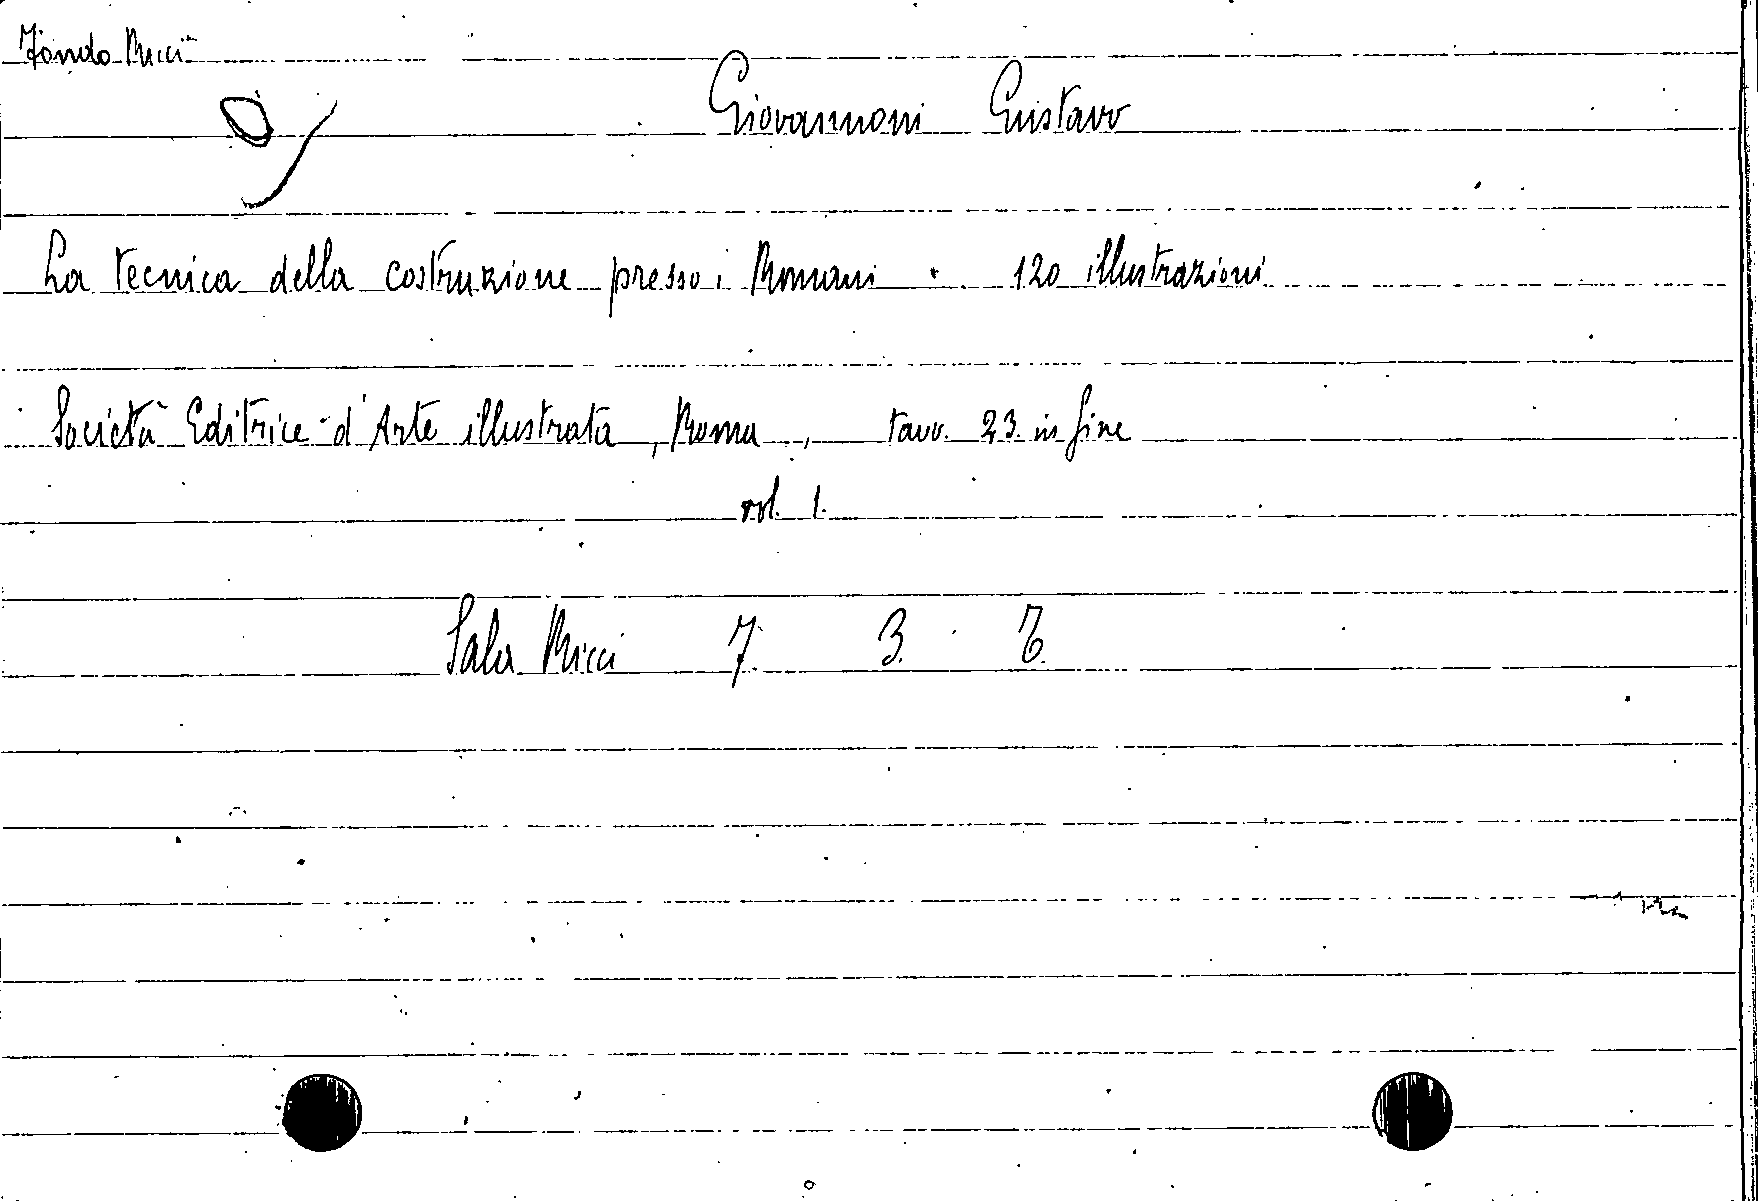 Fondo Ricci
Giovannoni Gustavo
La tecnica della costruzione presso i Romani . 120 illustrazioni
Società Editrice d'Arte illustrata, Roma, tavv. 23 in fine
vol. 1.
Sala Ricci 7. 3.